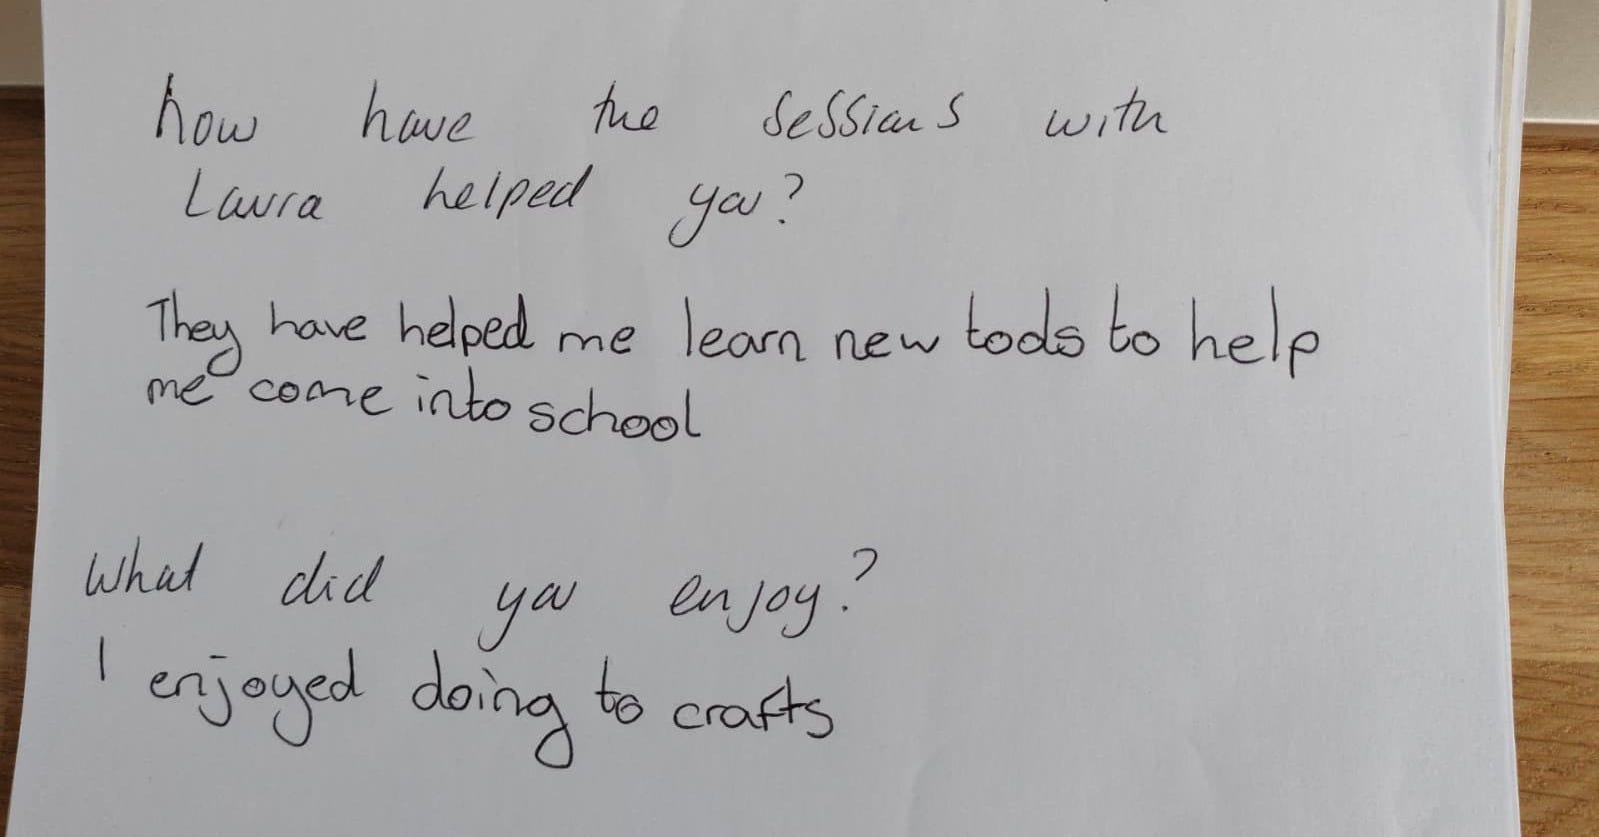 how have the sessions with
Laura helped you?
They have helped me learn new tools to help
me come into school
What did you enjoy?
I enjoyed doing to crafts